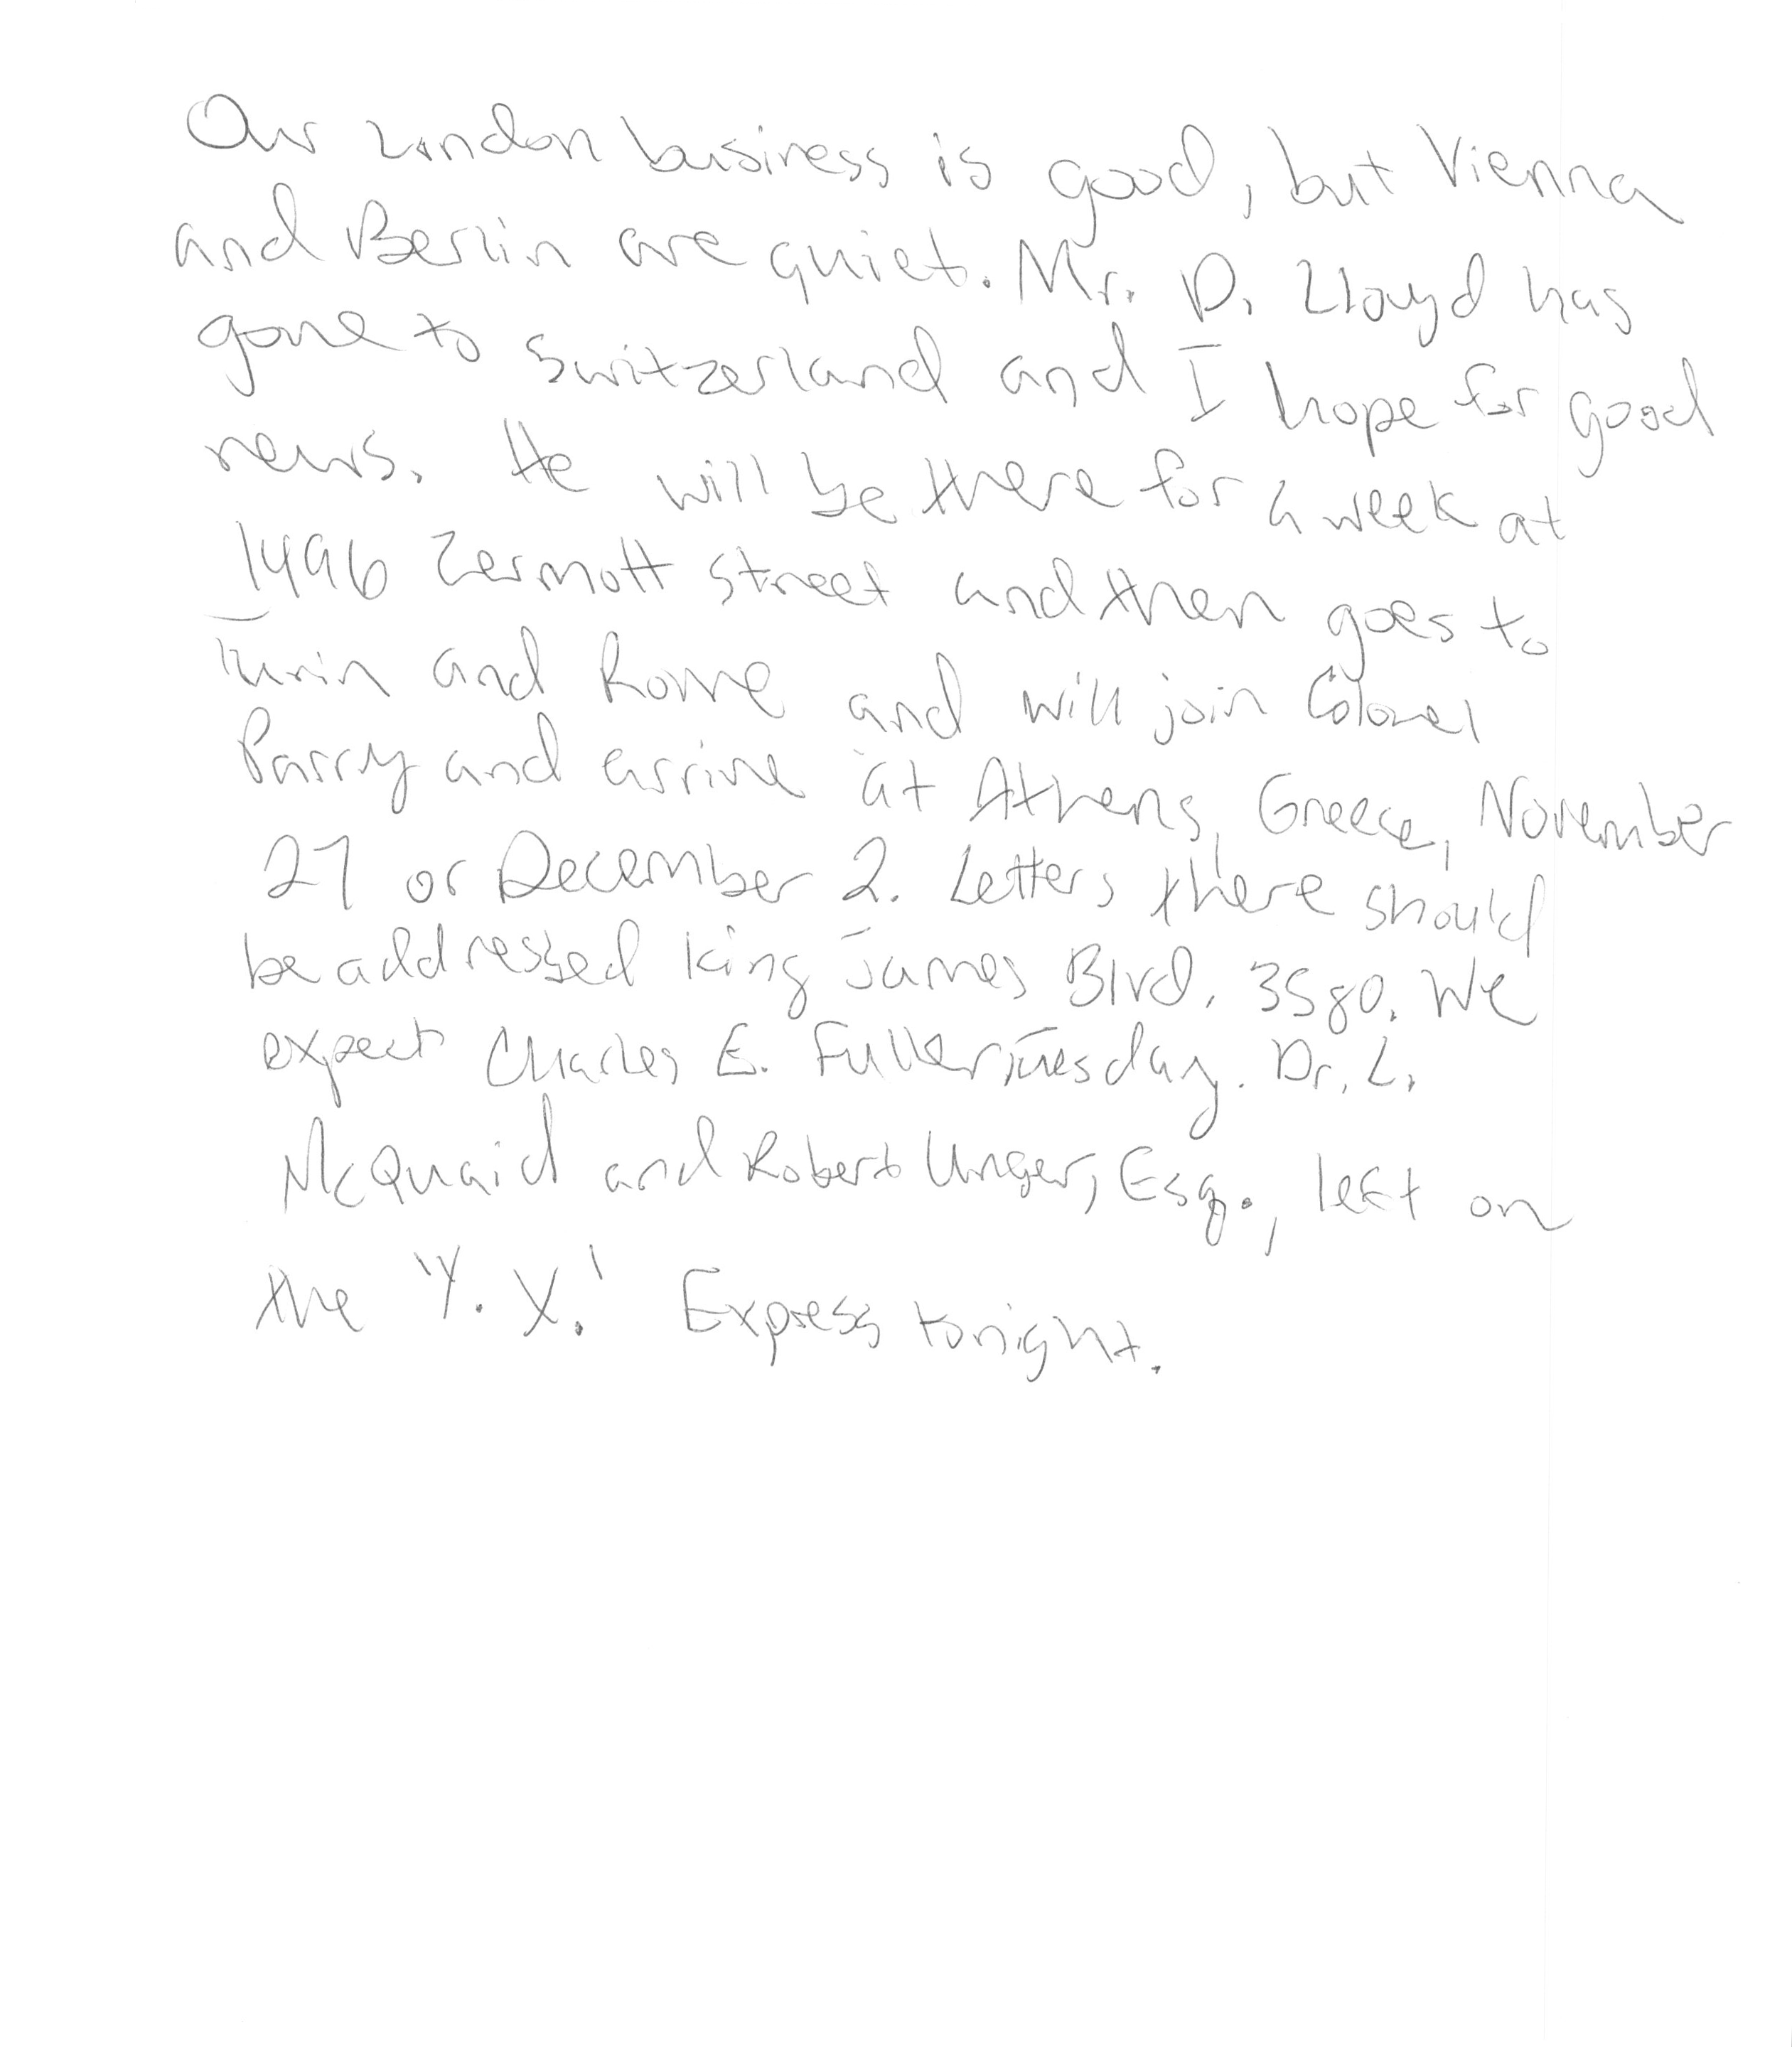 Our London business is good, but Vienna
and Berlin are quiet. Mr. D. Lloyd has
gone to Switzerland and I hope for good
news. He will be there for a week at
1496 Zermott street and then goes to
Turin and Rome and will join Colonel
Parry and arrive at Athens, Greece, November
27 or December 2. Letters there should
be addressed King James Blvd. 3580. We
expect Charles E. Fuller Tuesday. Dr. L.
McQuaid and Robert Unger, Esq., left on
the 'Y. X.' Express tonight.